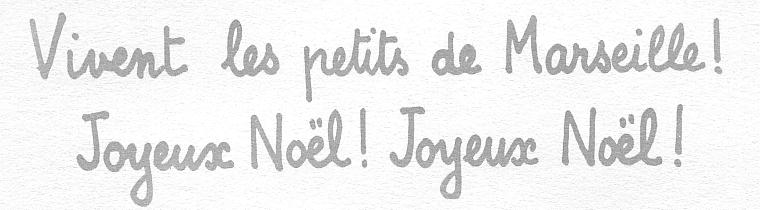 Vivent les petits de Marseille!
Joyeux Noël! Joyeux Noël!